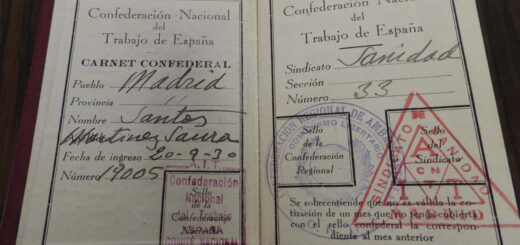 Confederación Nacional
del
Trabajo de España
CARNET CONFEDERAL
Pueblo Madrid
Provincia "
Nombre Santos
Martinez Saura
Fecha de ingreso 20-9-30
Número 19005
A.I.T.
Confederación
Nacional
del Trabajo
ESPAÑA
COMITÉ NACIONAL
Sello
de la
Confederación
Confederación Nacional
del
Trabajo de España
Sindicato Sanidad
Sección
Número 33
Sello
de la
Confederación
Regional
COMUNISMO LIBERTARIO
Sello
del
Sindicato
SINDICATO
SANIDAD
CN
AIT
Se sobreentiende que no es válida la co-
tización de un mes que no tenga cubierta
con el sello confederal la correspon-
diente al mes anterior